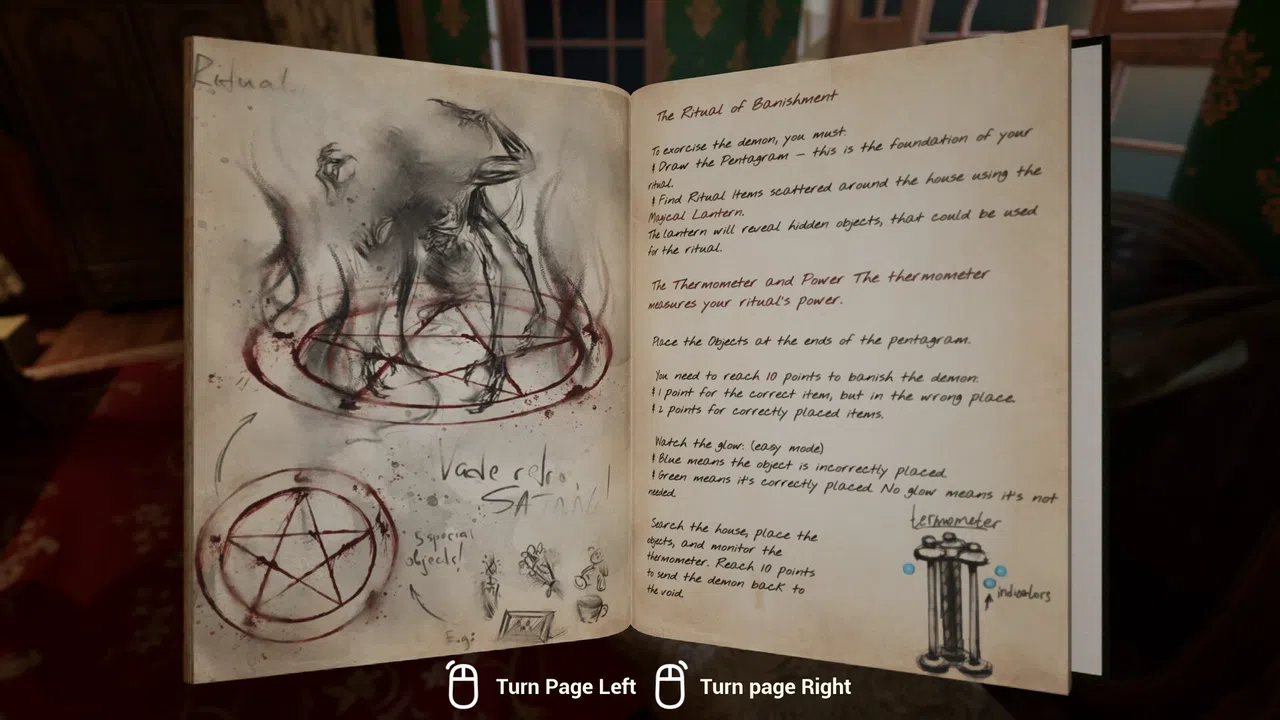 Ritual
Vade retro
SATANA!
5 special
objects!
E.g:
The Ritual of Banishment
To exorcise the demon, you must:
Draw the Pentagram — this is the foundation of your
ritual.
Find Ritual Items scattered around the house using the
Magical Lantern.
The lantern will reveal hidden objects, that could be used
for the ritual.
The Thermometer and Power The thermometer
measures your ritual's power.
Place the Objects at the ends of the pentagram.
You need to reach 10 points to banish the demon:
1 point for the correct item, but in the wrong place.
2 points for correctly placed items.
Watch the glow: (easy mode)
Blue means the object is incorrectly placed.
Green means it's correctly placed. No glow means it's not
needed.
Search the house, place the
objects, and monitor the
thermometer. Reach 10 points
to send the demon back to
the void.
termometer
indicators
Turn Page Left
Turn page Right